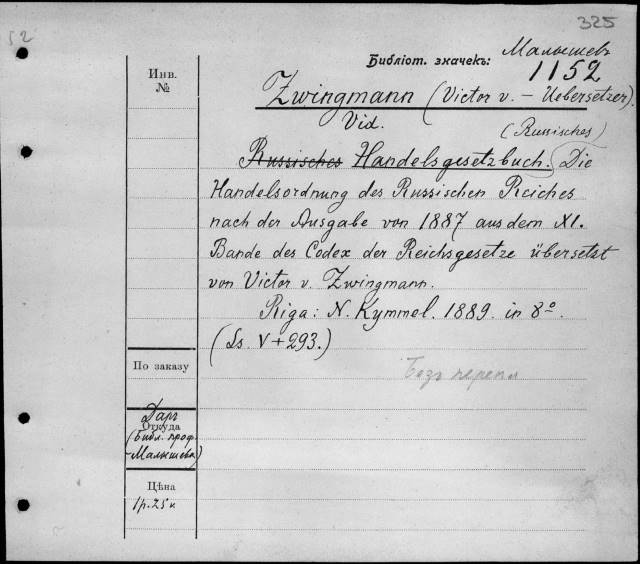 325
52
Малышевъ
Библіот. значекъ: 1152
Инв.
№
Zwingmann (Victor v. – Uebersetzer).
Vid.
(Russisches)
Russisches Handelsgesetzbuch. Die
Handelsordnung des Russischen Reiches
nach der Ausgabe von 1887 aus dem XI.
Bande des Codex der Reichsgesetze übersetzt
von Victor v. Zwingmann.
Riga: N. Kymmel. 1889. in 8º.
(Ss. V+293.)
По заказу
Безъ перепл
Даръ
Откуда
(Библ. проф.
Малышева)
Цѣна
1р.25к